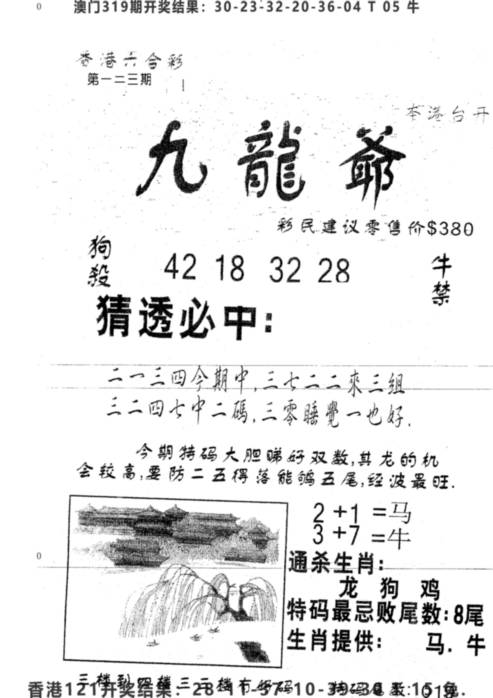 澳门319期开奖结果：30-23-32-20-36-04 T 05 牛
香港六合彩
第一二三期
本港台开
九龍爺
彩民建议零售价$380
狗殺
42 18 32 28
牛禁
猜透必中：
二一三四今期中,三七二二來三組
三二四七中二碼,三零睡覺一也好.
今期特码大胆睇好双数,其龙的机
会较高,要防二五得落能
五尾,经波最旺.
2+1=马
3+7=牛
通杀生肖：
龙 狗 鸡
特码最忌败尾数：8尾
生肖提供： 马．牛
香港121开奖结果：